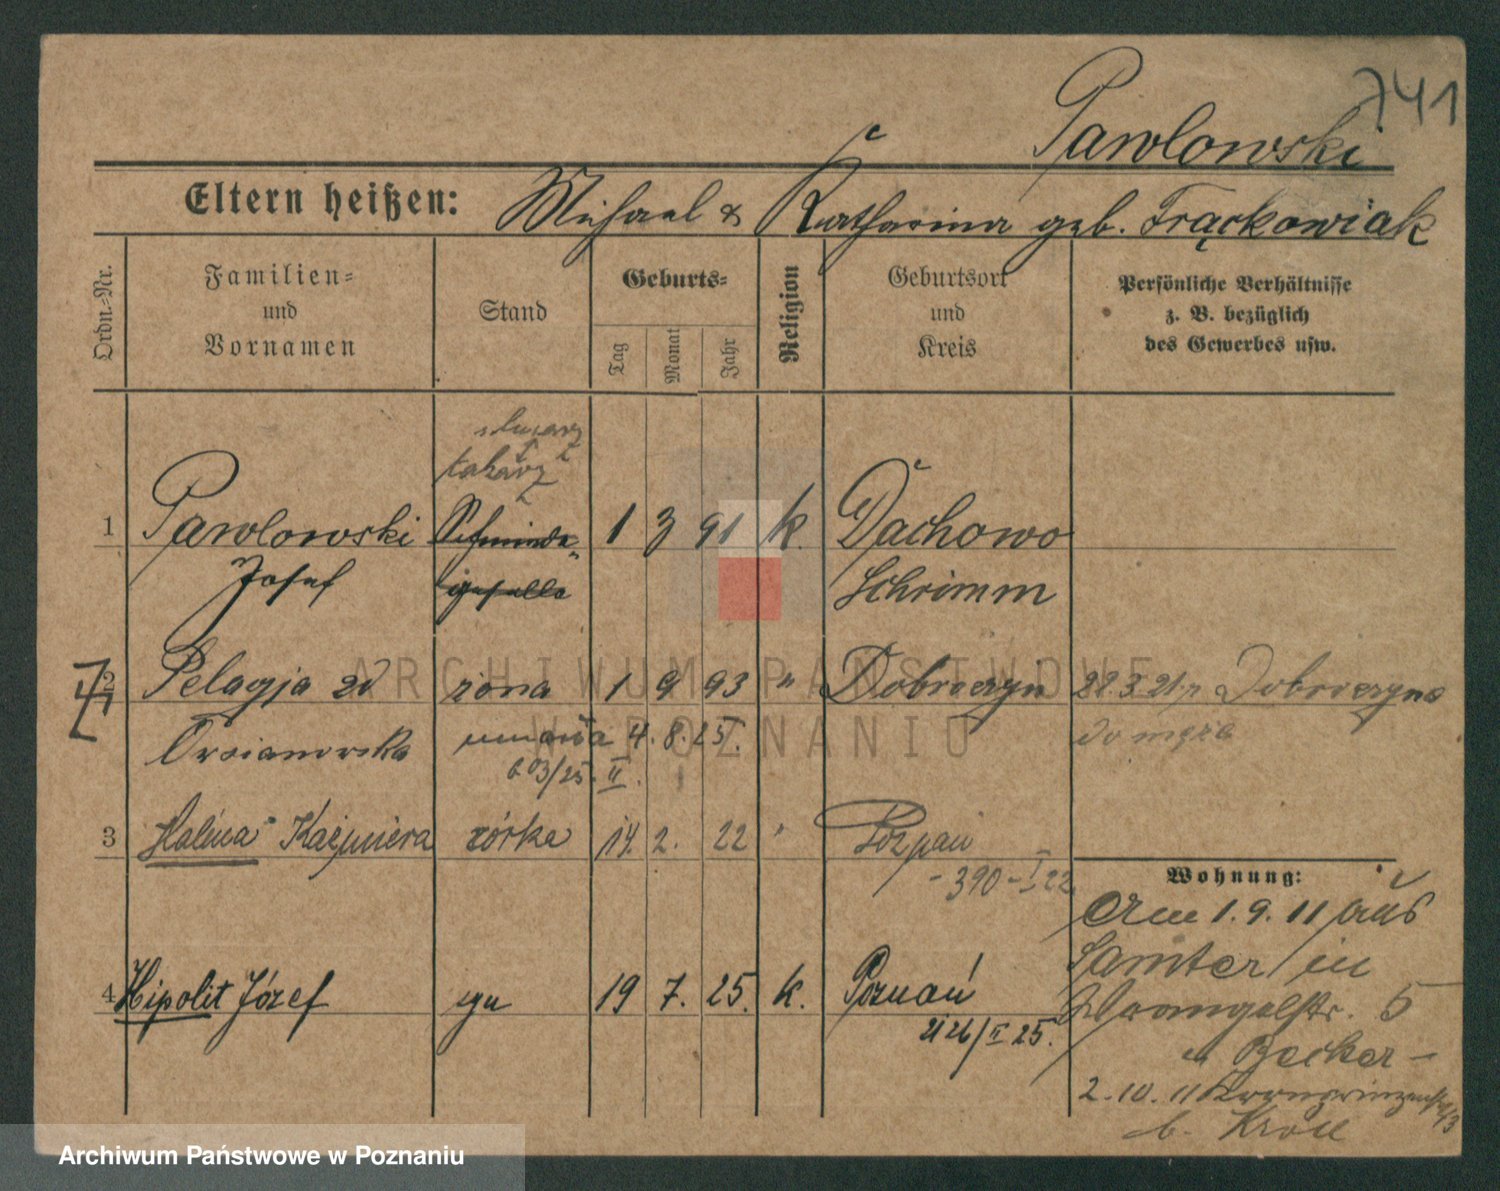 741
Pawlowski
Eltern heißen: Michael & Katharina geb. Frąckowiak
Ordn.-Nr.
Familien-
und
Vornamen
Stand
Geburts-
Tag
Monat
Jahr
Religion
Geburtsort
und
Kreis
Persönliche Verhältnisse
z. B. bezüglich
des Gewerbes usw.
ślusarz
tokarz
1 Pawlowski Schmiede- 1 3 91 k. Dachowo
Josef geselle Schrimm
2 Pelagja zd żona 1 9 93 " Dobroczyn 22.3.21 z Dobroczyna
umarła 4.8.25. do męża
603/25 II.
3 Halina Kaźmiera córka 14. 2. 22 " Poznań
-390-I 22
Wohnung:
Am 1.9.11 aus
Samter in
Wrangelstr. 5
b. Becker -
4 Hipolit Józef syn 19 7. 25. k. Poznań
2126/II 25.
2.10.11 Kronprinzenstr.
b. Kroll
ARCHIWUM PAŃSTWOWE
W POZNANIU
Archiwum Państwowe w Poznaniu